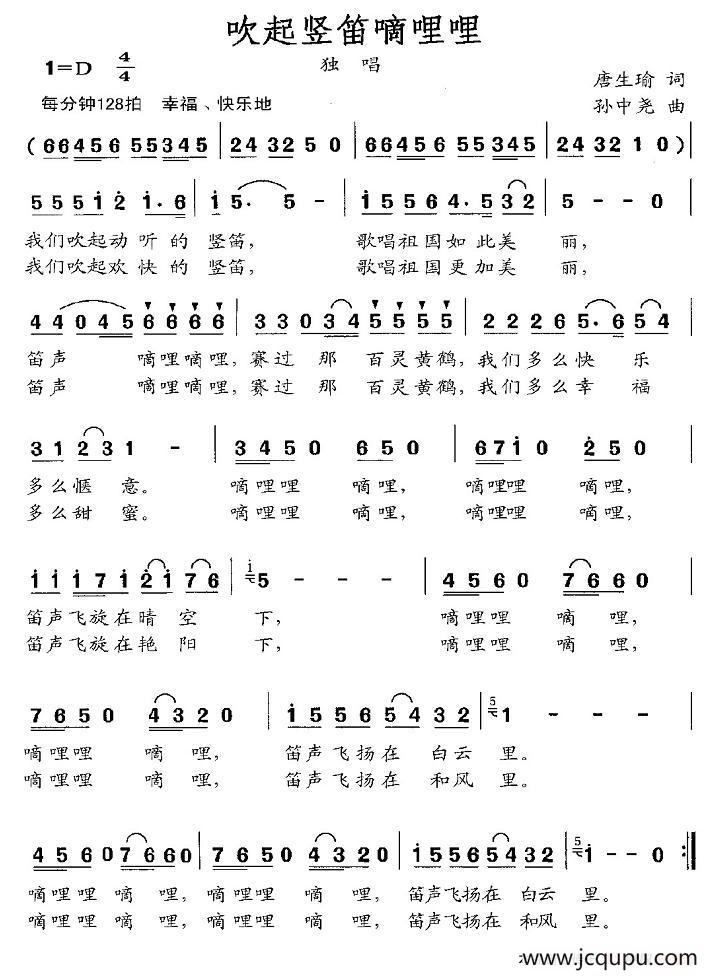 吹起竖笛嘀哩哩
1=D 4/4
独唱
唐生瑜 词
每分钟128拍 幸福、快乐地
孙中尧 曲
(66456 55345 | 24 32 5 0 | 66456 55345 | 24 32 1 0)
5 5 5 i 2 i· 6 | i 5· 5 - | i 5 5 6 4· 5 3 2 | 5 - - 0
我们吹起动听的竖笛, 歌唱祖国如此美丽,
我们吹起欢快的竖笛, 歌唱祖国更加美丽,
4 4 0 4 5 6 6 6 6 | 3 3 0 3 4 5 5 5 5 | 2 2 2 6 5· 6 5 4
笛声 嘀哩嘀哩,赛过那 百灵黄鹤,我们多么快乐
笛声 嘀哩嘀哩,赛过那 百灵黄鹤,我们多么幸福
3 1 2 3 1 - | 3 4 5 0 6 5 0 | 6 7 i 0 2 5 0
多么惬意。 嘀哩哩 嘀哩, 嘀哩哩 嘀哩,
多么甜蜜。 嘀哩哩 嘀哩, 嘀哩哩 嘀哩,
i i i 7 i 2 i 7 6 | i 5 - - - | 4 5 6 0 7 6 6 0
笛声飞旋在晴空下, 嘀哩哩 嘀哩,
笛声飞旋在艳阳下, 嘀哩哩 嘀哩,
7 6 5 0 4 3 2 0 | i 5 5 6 5 4 3 2 | 5 1 - - 0
嘀哩哩 嘀哩, 笛声飞扬在白云里。
嘀哩哩 嘀哩, 笛声飞扬在和风里。
4 5 6 0 7 6 6 0 | 7 6 5 0 4 3 2 0 | i 5 5 6 5 4 3 2 | 5 i - - 0 :||
嘀哩哩 嘀哩, 嘀哩哩 嘀哩, 笛声飞扬在白云里。
嘀哩哩 嘀哩, 嘀哩哩 嘀哩, 笛声飞扬在和风里。
www.jcqupu.com